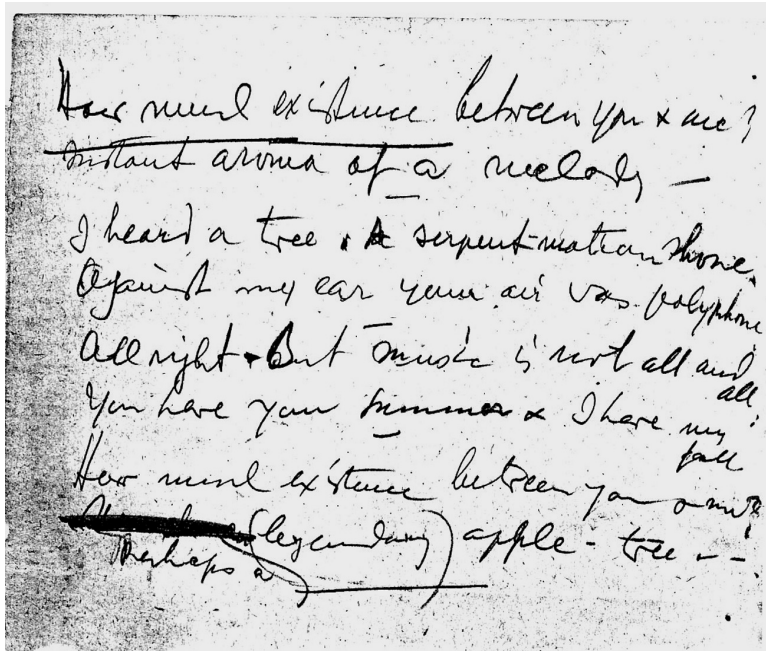 How much existence between you & me?
Instant aroma of a melody —
I heard a tree. A serpent-motion shone.
Against my ear your air was polyphone.
All right. But music is not all and all:
You have your summer & I have my fall
How much existence between you & me?
Perhaps a (legendary) apple-tree --